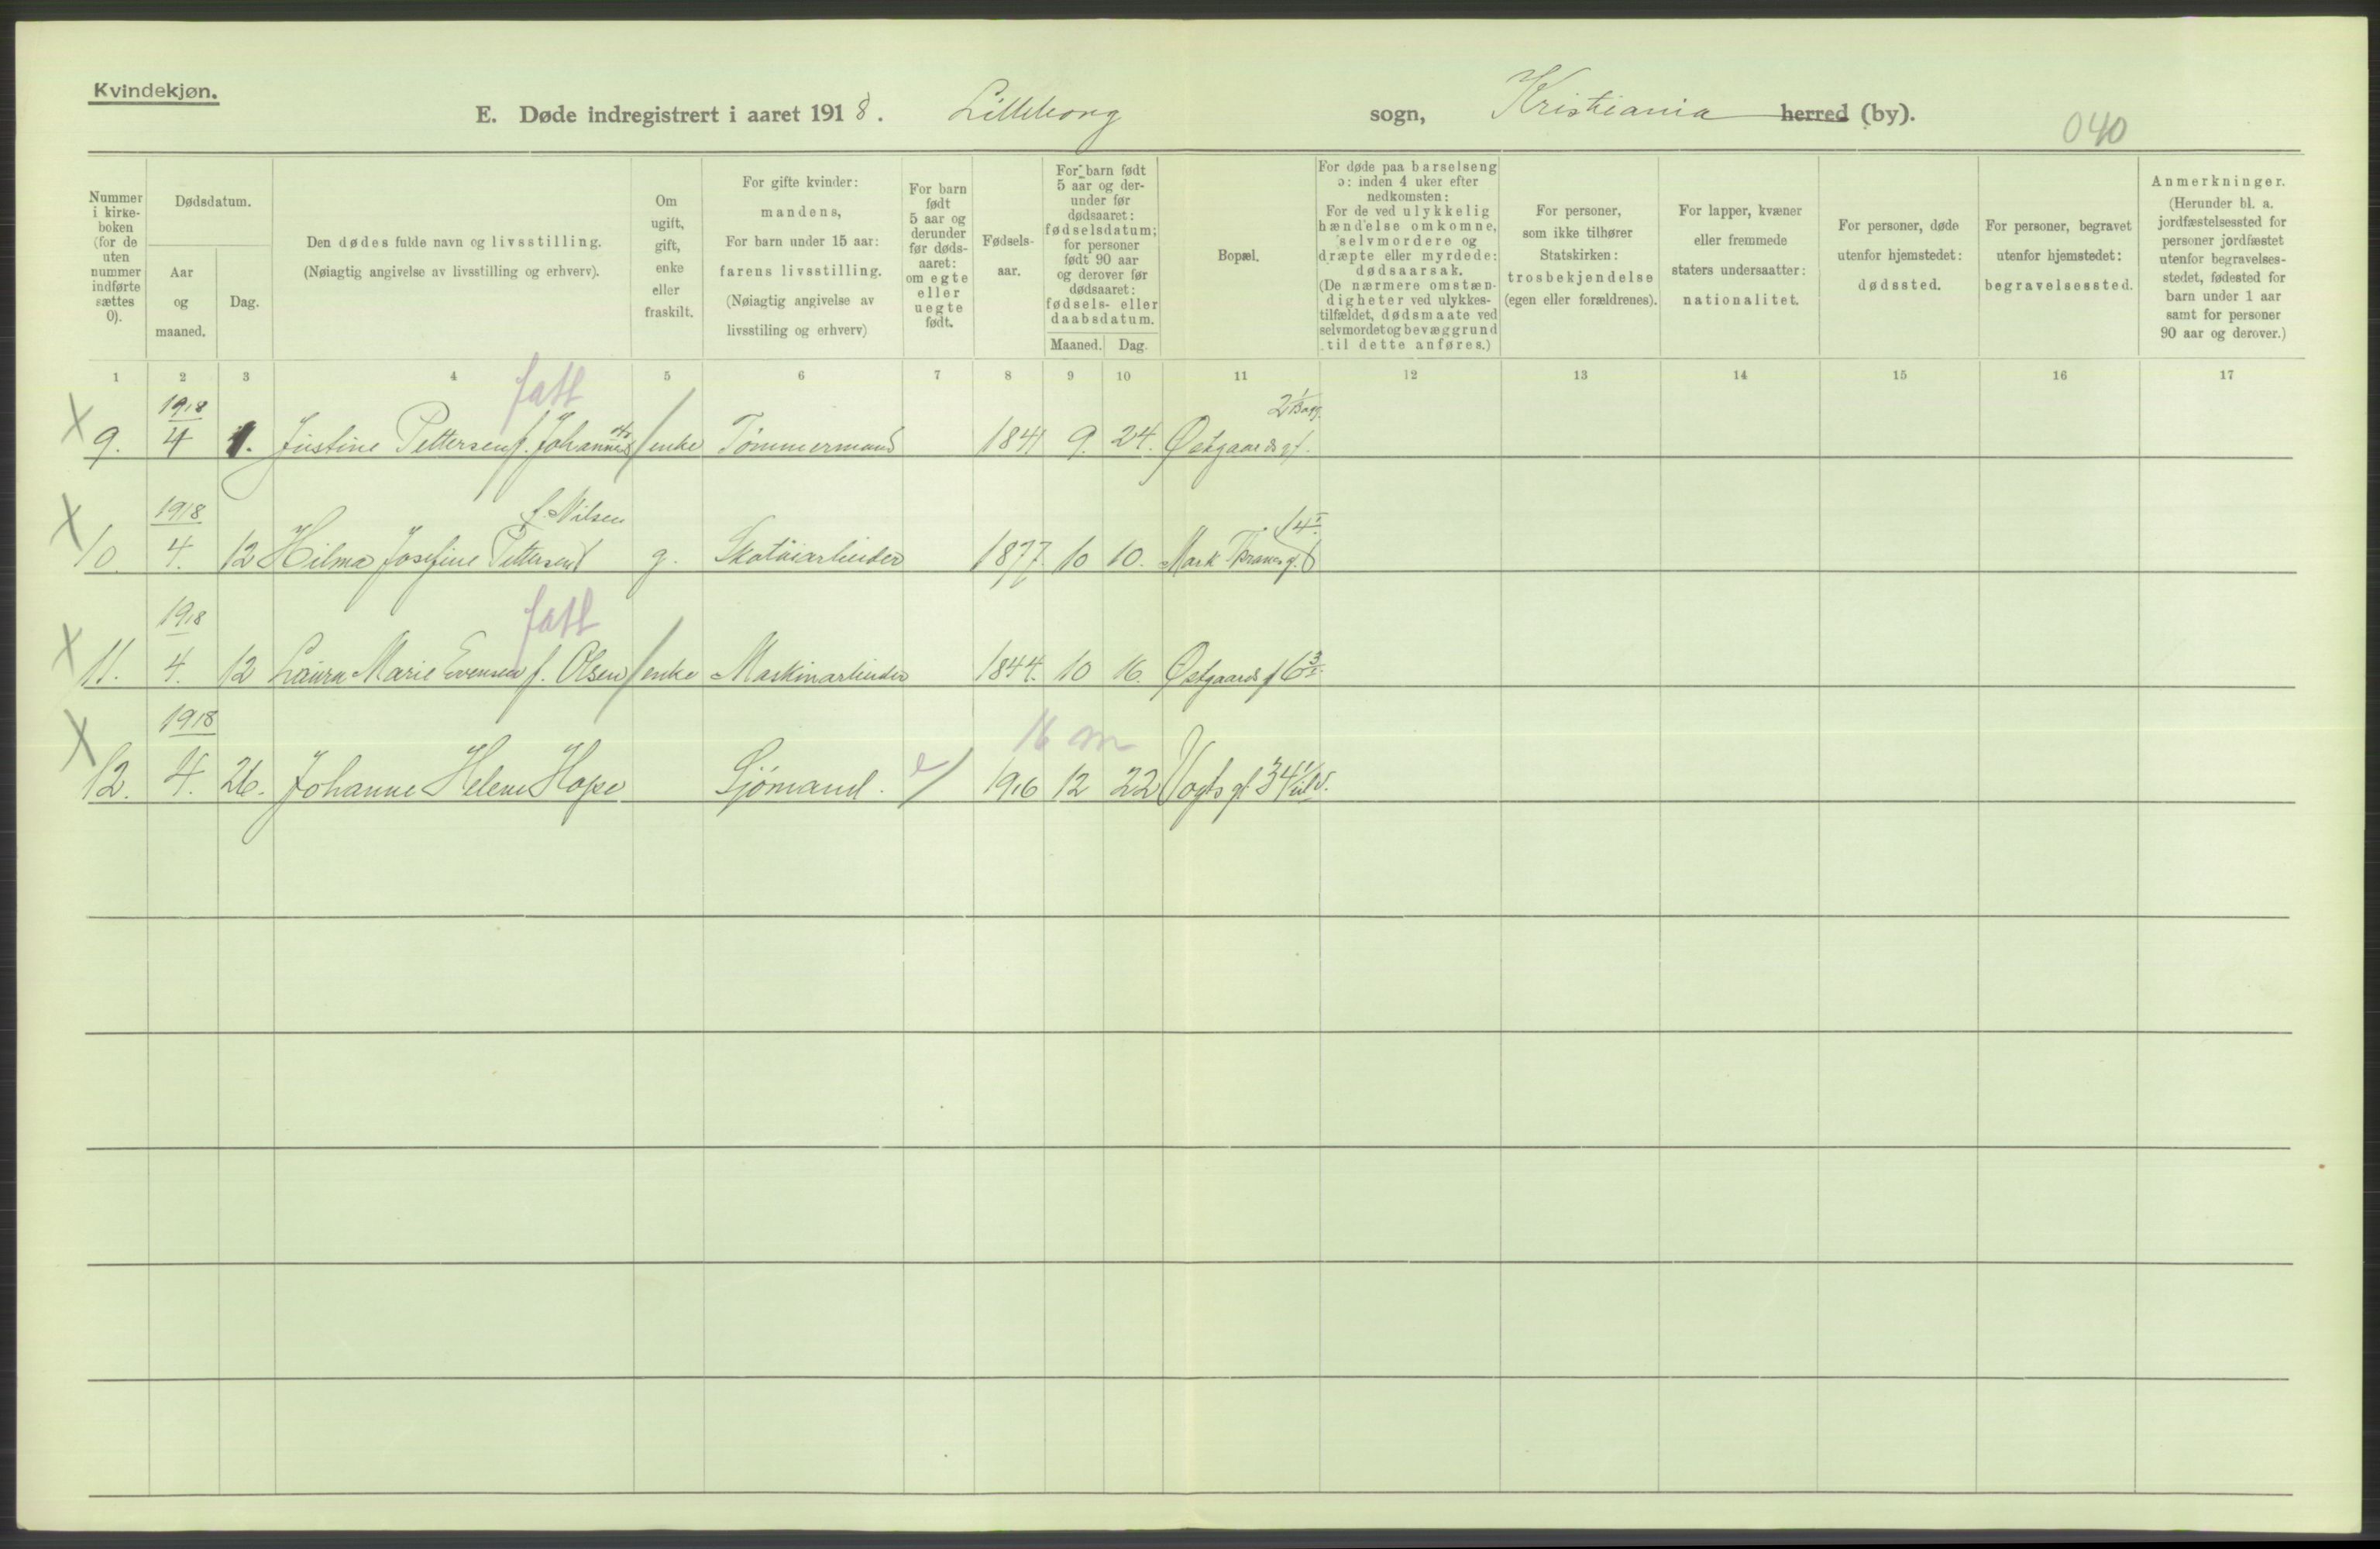 Kvindekjøn.
E. Døde indregistrert i aaret 1918. Lilleborg sogn, Kristiania herred (by).
040
Nummer i kirke-boken (for de uten nummer indførte sættes 0).
Dødsdatum.
Aar og maaned.
Dag.
Den dødes fulde navn og livsstilling.
(Nøiagtig angivelse av livsstilling og erhverv).
Om ugift, gift, enke eller fraskilt.
For gifte kvinder: mandens,
For barn under 15 aar: farens livsstilling.
(Nøiagtig angivelse av livsstiling og erhverv)
For barn født 5 aar og derunder før døds-aaret: om egte eller uegte født.
Fødsels-aar.
For barn født 5 aar og der-under før dødsaaret: fødselsdatum; for personer født 90 aar og derover før dødsaaret: fødsels- eller daabsdatum.
Maaned. Dag.
Bopæl.
For døde paa barselseng ɔ: inden 4 uker efter nedkomsten: For de ved ulykkelig hændelse omkomne, selvmordere og dræpte eller myrdede: dødsaarsak. (De nærmere omstæn-digheter ved ulykkes-tilfældet, dødsmaate ved selvmordet og bevæggrund til dette anføres.)
For personer, som ikke tilhører Statskirken: trosbekjendelse (egen eller forældrenes).
For lapper, kvæner eller fremmede staters undersaatter: nationalitet.
For personer, døde utenfor hjemstedet: dødssted.
For personer, begravet utenfor hjemstedet: begravelsessted.
Anmerkninger. (Herunder bl. a. jordfæstelsessted for personer jordfæstet utenfor begravelses-stedet, fødested for barn under 1 aar samt for personer 90 aar og derover.)
1 2 3 4 5 6 7 8 9 10 11 12 13 14 15 16 17
fatt
X 9. 1918 4 1. Justine Pettersen f. Johannes enke Tømmermand 1841 9. 24. Østgaardsgt. 2
f. Nilsen
X 10. 1918 4. 12 Hilma Josefine Pettersen g. Skotøiarbeider 1877. 10 10. Mark Thranesg. 14 I
fatt
X 11. 1918 4. 12 Laura Marie Evensen f. Olsen enke Maskinarbeider 1844. 10 16. Østgaardsg 6
16 m
X 12. 1918 4. 26. Johanne Helene Hope Sjømand. e 1916 12 22 Vogts gt 34